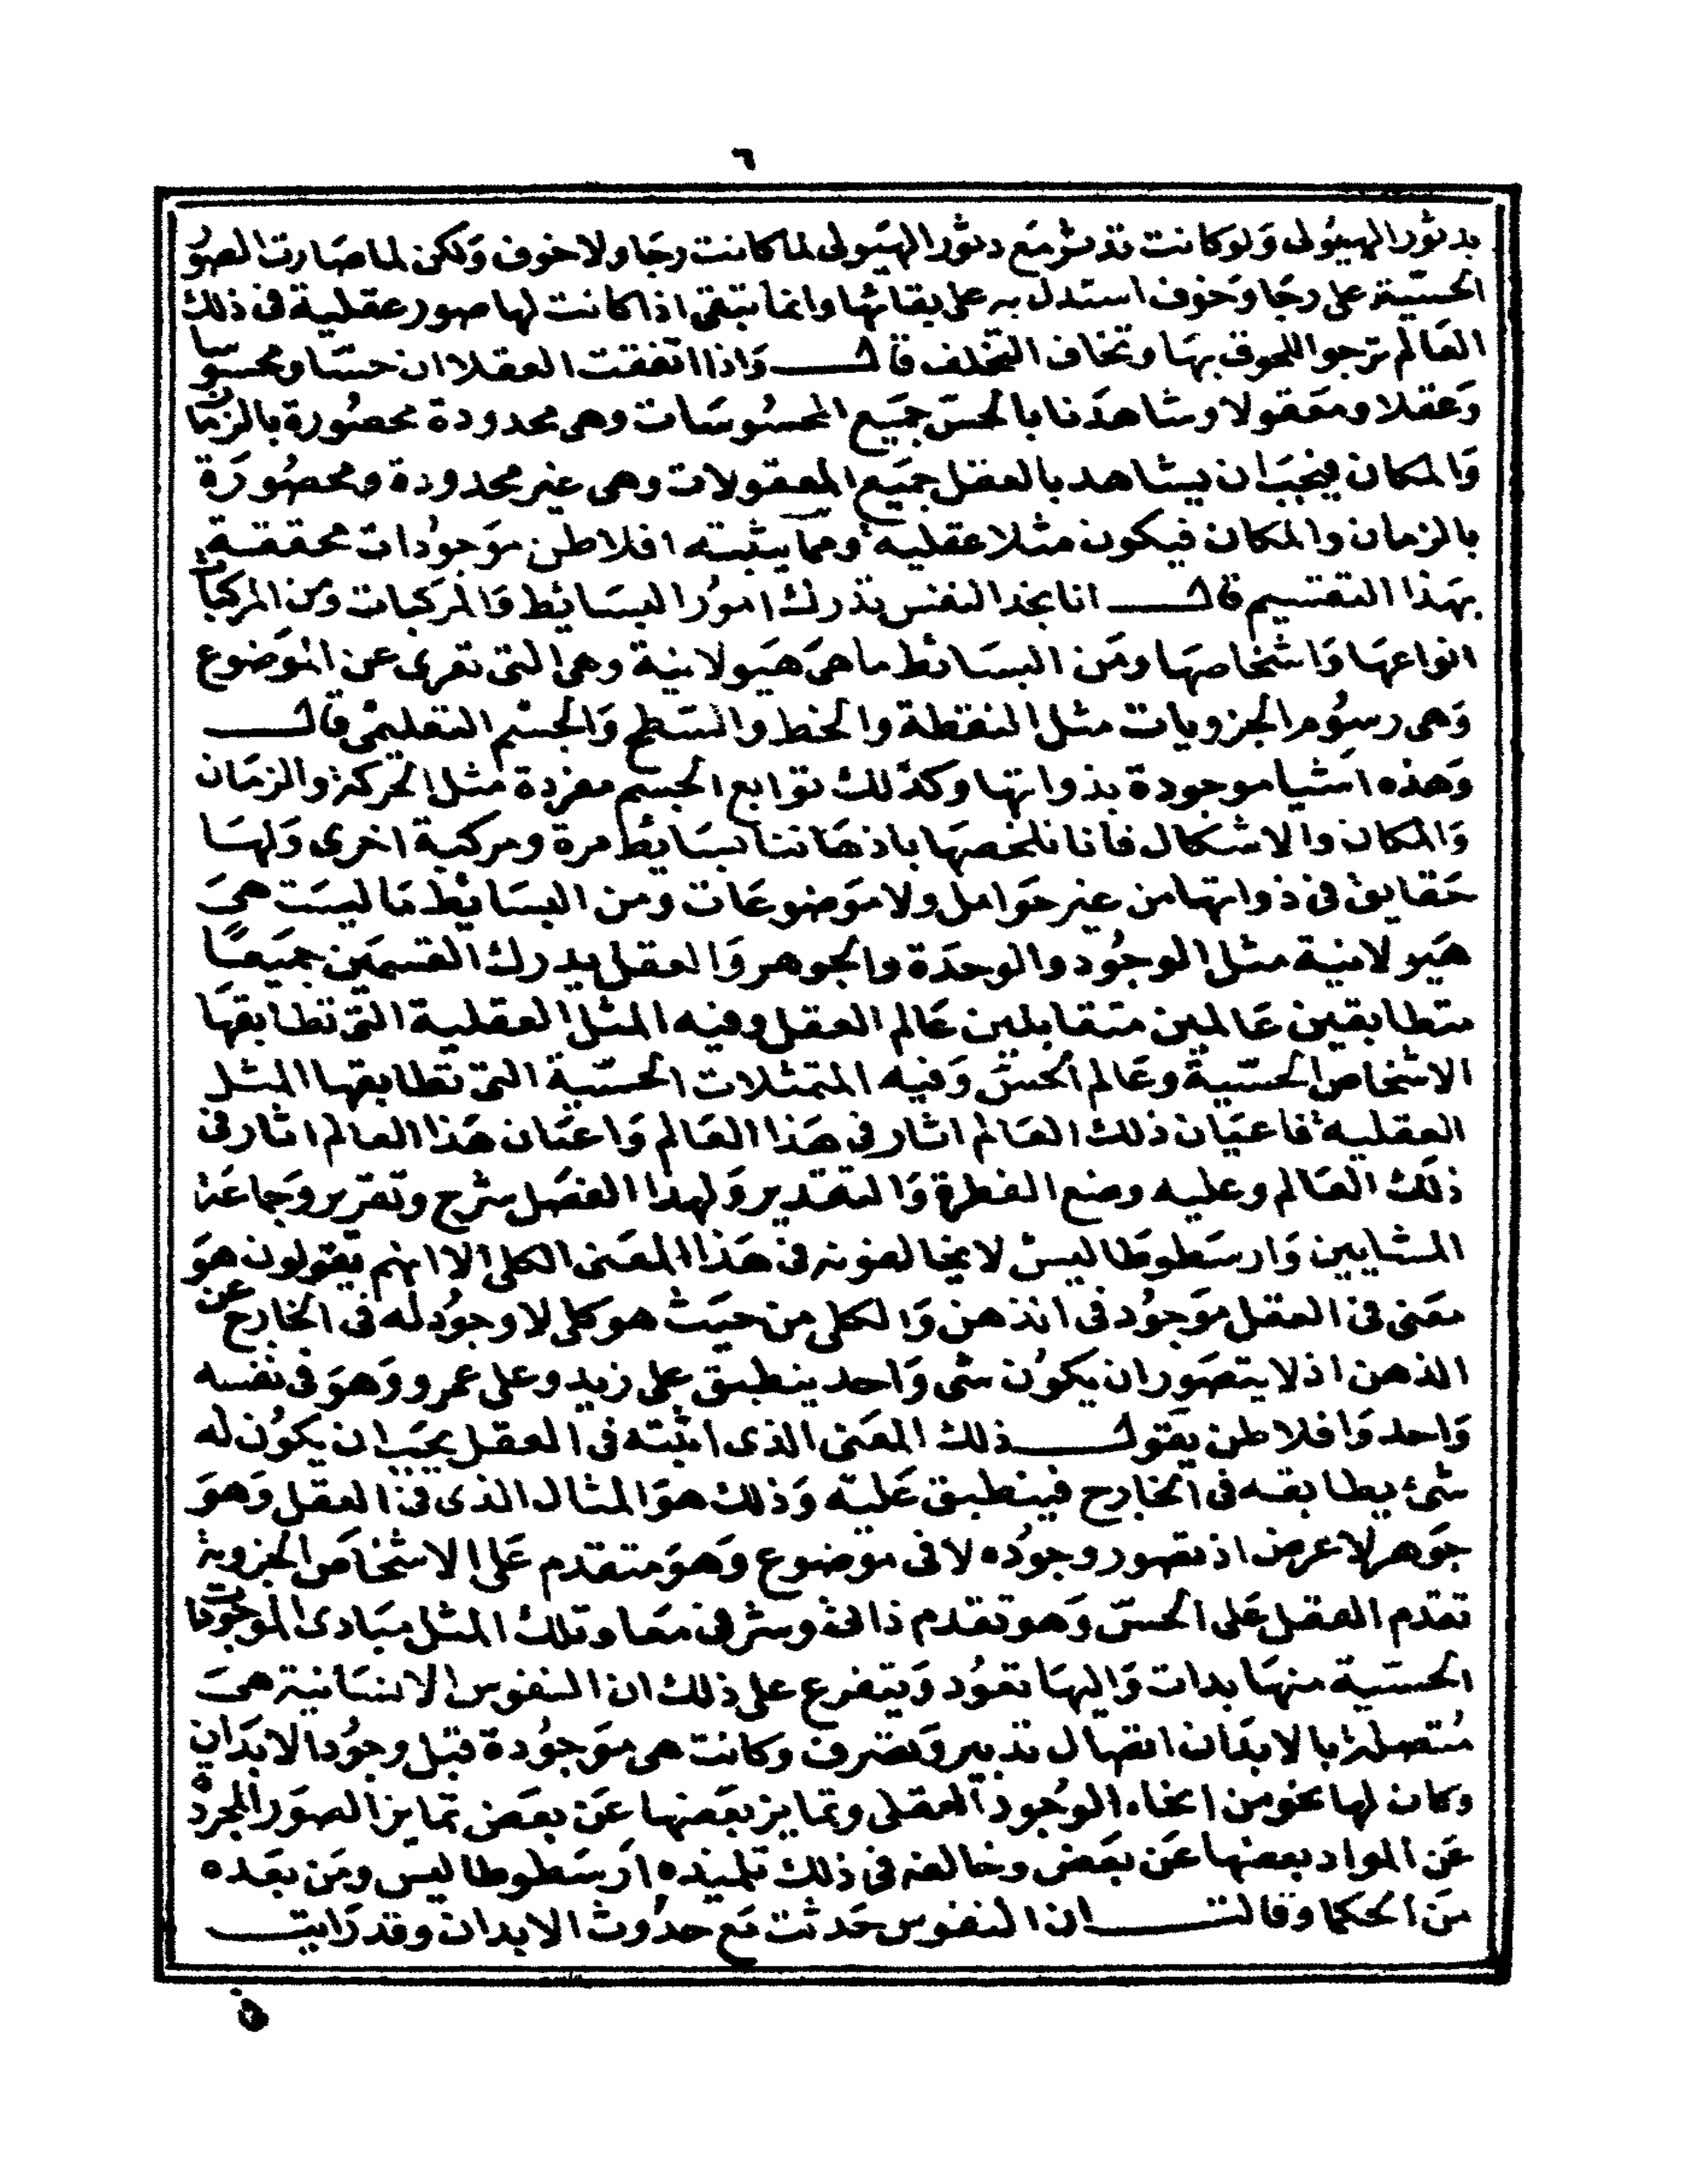 ٦
بدثور الهيولى ولو كانت تدثر مع دثور الهيولى لما كانت رجا ولا خوف ولكن لما صارت الصور
الحسية على رجا وخوف استدل به على بقائها وانما تبقى اذا كانت لها صور عقلية فى ذلك
العالم ترجوا اللحوق بها وتخاف التخلف قال واذا اتفقت العقلا ان حسا ومحسوسا
وعقلا ومعقولا وشاهدنا بالحس جميع المحسوسات وهى محدودة محصورة بالزمان
والمكان فيجب ان يشاهد بالعقل جميع المعقولات وهى غير محدودة ومحصورة
بالزمان والمكان فيكون مثلا عقلية ومما يثبته افلاطن موجودات محققة
بهذا التقسيم قال انا نجد النفس تدرك امور البسائط والمركبات ومن المركبات
انواعها واشخاصها ومن البسائط ما هى هيولانية وهى التى تعرى عن الموضوع
وهى رسوم الجزويات مثل النقطة والخط والسطح والجسم التعليمى قال
وهذه اشيا موجودة بذواتها وكذلك توابع الجسم مفردة مثل الحركة والزمان
والمكان والاشكال فانا نلخصها باذهاننا بسائط مرة ومركبة اخرى ولها
حقايق فى ذواتها من غير حوامل ولا موضوعات ومن البسائط ما ليست هى
هيولانية مثل الوجود والوحدة والجوهر والعقل يدرك القسمين جميعا
متطابقين عالمين متقابلين عالم العقل وفيه المثل العقلية التى تطابقها
الاشخاص الحسية وعالم الحس وفيه المتمثلات الحسية التى تطابقها المثل
العقلية فاعيان ذلك العالم اثار فى هذا العالم واعيان هذا العالم اثار فى
ذلك العالم وعليه وضع الفطرة والتقدير ولهذا الفصل شرح وتقرير وجماعة
المشايين وارسطوطاليس لا يخالفونه فى هذا المعنى الكلى الا انهم يقولون هو
معنى فى العقل موجود فى الذهن والكلى من حيث هو كلى لا وجود له فى الخارج عن
الذهن اذ لا يتصور ان يكون شى واحد ينطبق على زيد وعلى عمرو وهو فى نفسه
واحد وافلاطن يقول ذلك المعنى الذى اثبته فى العقل يجب ان يكون له
شئ يطابقه فى الخارج فينطبق عليه وذلك هو المثال الذى فى العقل وهو
جوهر لا عرض اذ تصور وجوده لا فى موضوع وهو متقدم على الاشخاص الجزوية
تقدم العقل على الحس وهو تقدم ذاتى وشرفى معا وتلك المثل مبادى الموجودات
الحسية منها بدات واليها تعود ويتفرع على ذلك ان النفوس الانسانية هى
متصلة بالابدان اتصال تدبير وتصرف وكانت هى موجودة قبل وجود الابدان
وكان لها نحو من انحاء الوجود العقلى وتمايز بعضها عن بعض تمايز الصور المجردة
عن المواد بعضها عن بعض وخالفه فى ذلك تلميذه ارسطوطاليس ومن بعده
من الحكما وقالت ان النفوس حدثت مع حدوث الابدان وقد رايت